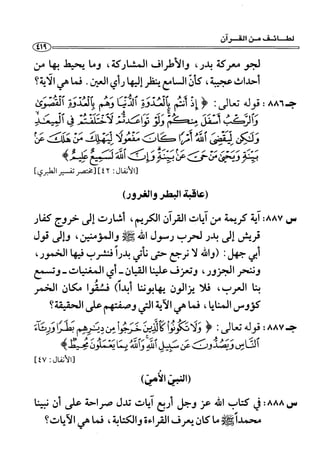 لطائف من القرآن
٤١٩
لجو معركة بدر، والأطراف المشاركة، وما يحيط بها من
أحداث عجيبة، كأن السامع ينظر إليها رأي العين. فما هي الآية؟
جـ ٨٨٦: قوله تعالى: ﴿ إِذْ أَنتُم بِالْعُدْوَةِ الدُّنْيَا وَهُم بِالْعُدْوَةِ الْقُصْوَىٰ
وَالرَّكْبُ أَسْفَلَ مِنكُمْ وَلَوْ تَوَاعَدتُّمْ لَاخْتَلَفْتُمْ فِي الْمِيعَادِ
وَلَٰكِن لِّيَقْضِيَ اللَّهُ أَمْرًا كَانَ مَفْعُولًا لِّيَهْلِكَ مَنْ هَلَكَ عَن
بَيِّنَةٍ وَيَحْيَىٰ مَنْ حَيَّ عَن بَيِّنَةٍ وَإِنَّ اللَّهَ لَسَمِيعٌ عَلِيمٌ ﴾
[الأنفال: ٤٢] [مختصر تفسير الطبري]
(عاقبة البطر والغرور)
س ٨٨٧: آية كريمة من آيات القرآن الكريم، أشارت إلى خروج كفار
قريش إلى بدر لحرب رسول الله ﷺ والمؤمنين، وإلى قول
أبي جهل: (والله لا نرجع حتى نأتي بدراً فنشرب فيها الخمور،
وننحر الجزور، وتعزف علينا القيان - أي المغنيات - وتسمع
بنا العرب، فلا يزالون يهابوننا أبداً) فسُقُوا مكان الخمر
كؤوس المنايا، فما هي الآية التي وصفتهم على الحقيقة؟
جـ ٨٨٧: قوله تعالى: ﴿ وَلَا تَكُونُوا كَالَّذِينَ خَرَجُوا مِن دِيَارِهِم بَطَرًا وَرِئَاءَ
النَّاسِ وَيَصُدُّونَ عَن سَبِيلِ اللَّهِ وَاللَّهُ بِمَا يَعْمَلُونَ مُحِيطٌ ﴾
[الأنفال: ٤٧]
(النبيّ الأميّ)
س ٨٨٨: في كتاب الله عز وجل أربع آيات تدل صراحة على أن نبينا
محمداً ﷺ ما كان يعرف القراءة والكتابة، فما هي الآيات؟